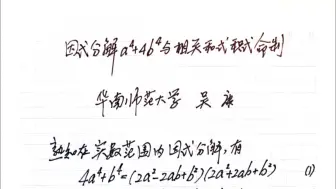 因式分解a⁴+4b⁴与相关和式积式命制
华南师范大学 吴康
熟知在实数范围内因式分解,有
4a⁴+b⁴=(2a²-2ab+b²)(2a²+2ab+b²) (1)